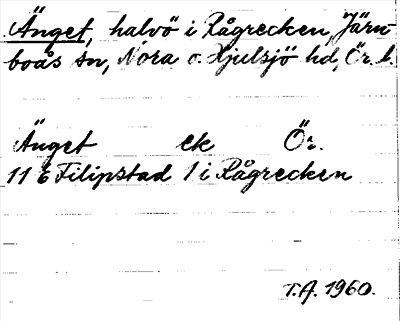 Änget, halvö i Rågrecken, Järn-
boås sn, Nora o. Hjulsjö hd, Ör. l.
Änget ek Ör.
11 E Filipstad 1 i Rågrecken
T.A. 1960.